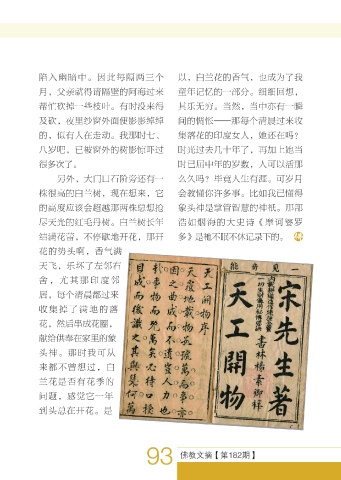 陷入幽暗中。因此每隔两三个
月，父亲就得请隔壁的阿海过来
帮忙砍掉一些枝叶。有时没来得
及砍，夜里纱窗外面便影影绰绰
的，似有人在走动。我那时七、
八岁吧，已被窗外的树影惊吓过
很多次了。
另外，大门口石阶旁还有一
株很高的白兰树，现在想来，它
的高度应该会超越那两株总想抢
尽天光的红毛丹树。白兰树长年
结满花苞，不停歇地开花，那开
花的势头啊，香气满
天飞，乐坏了左邻右
舍，尤其那印度邻
居，每个清晨都过来
收集掉了满地的落
花，然后串成花圈，
献给供奉在家里的象
头神。那时我可从
来都不曾想过，白
兰花是否有花季的
问题，感觉它一年
到头总在开花。是
以，白兰花的香气，也成为了我
童年记忆的一部分。细细回想，
其乐无穷。当然，当中亦有一瞬
间的惆怅——那每个清晨过来收
集落花的印度女人，她还在吗？
时光过去几十年了，再加上她当
时已届中年的岁数，人可以活那
么久吗？毕竟人生有涯。可岁月
会教懂你许多事。比如我已懂得
象头神是掌管智慧的神祇。那部
浩如烟海的大史诗《摩诃婆罗
多》是祂不眠不休记录下的。
宋先生著
天工開物
書林楊素卿梓
天工開物序
天覆地載物數號萬而事亦
因之曲成而不遺豈人力也
哉事物而既萬矣必待口授
目成而後識之其與幾何萬
93 佛教文摘【第182期】